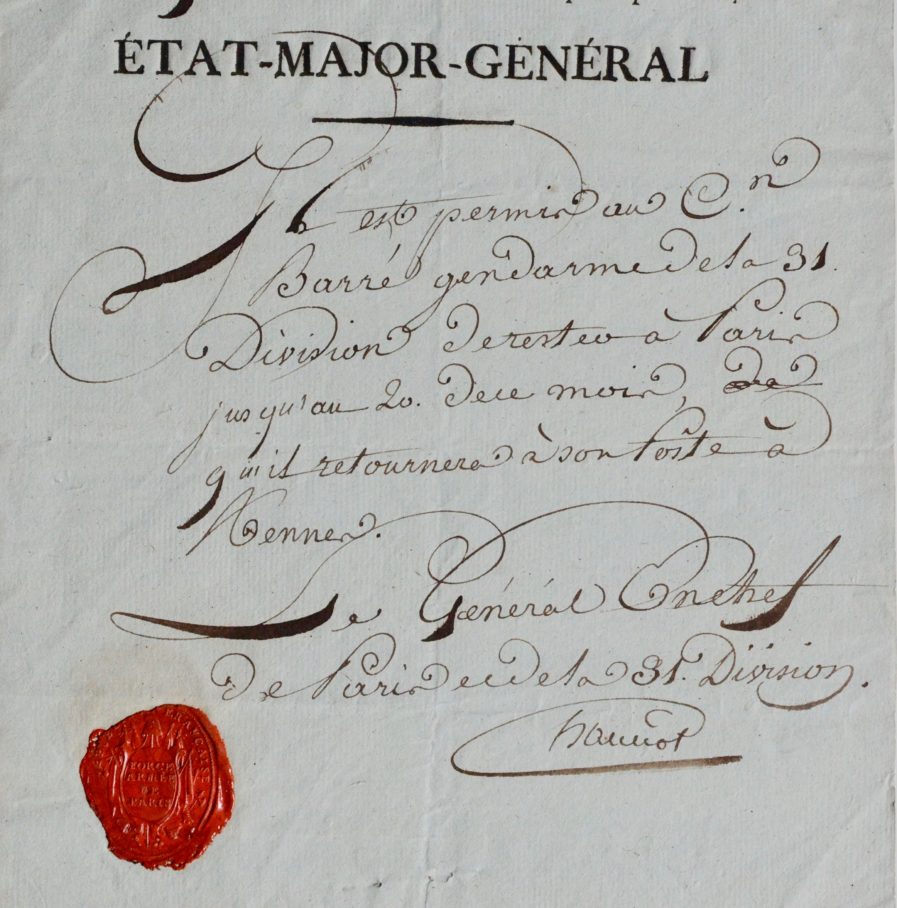 ÉTAT-MAJOR-GÉNÉRAL
Il est permis au C.n
Barré gendarme de la 31.
Division de rester à Paris
jusqu'au 20. de ce mois, de
qu'il retournera à son Poste à
Rennes.
Le Général en chef
de Paris et de la 31. Division.
hanriot
FORCE
ARMÉE
DE
PARIS